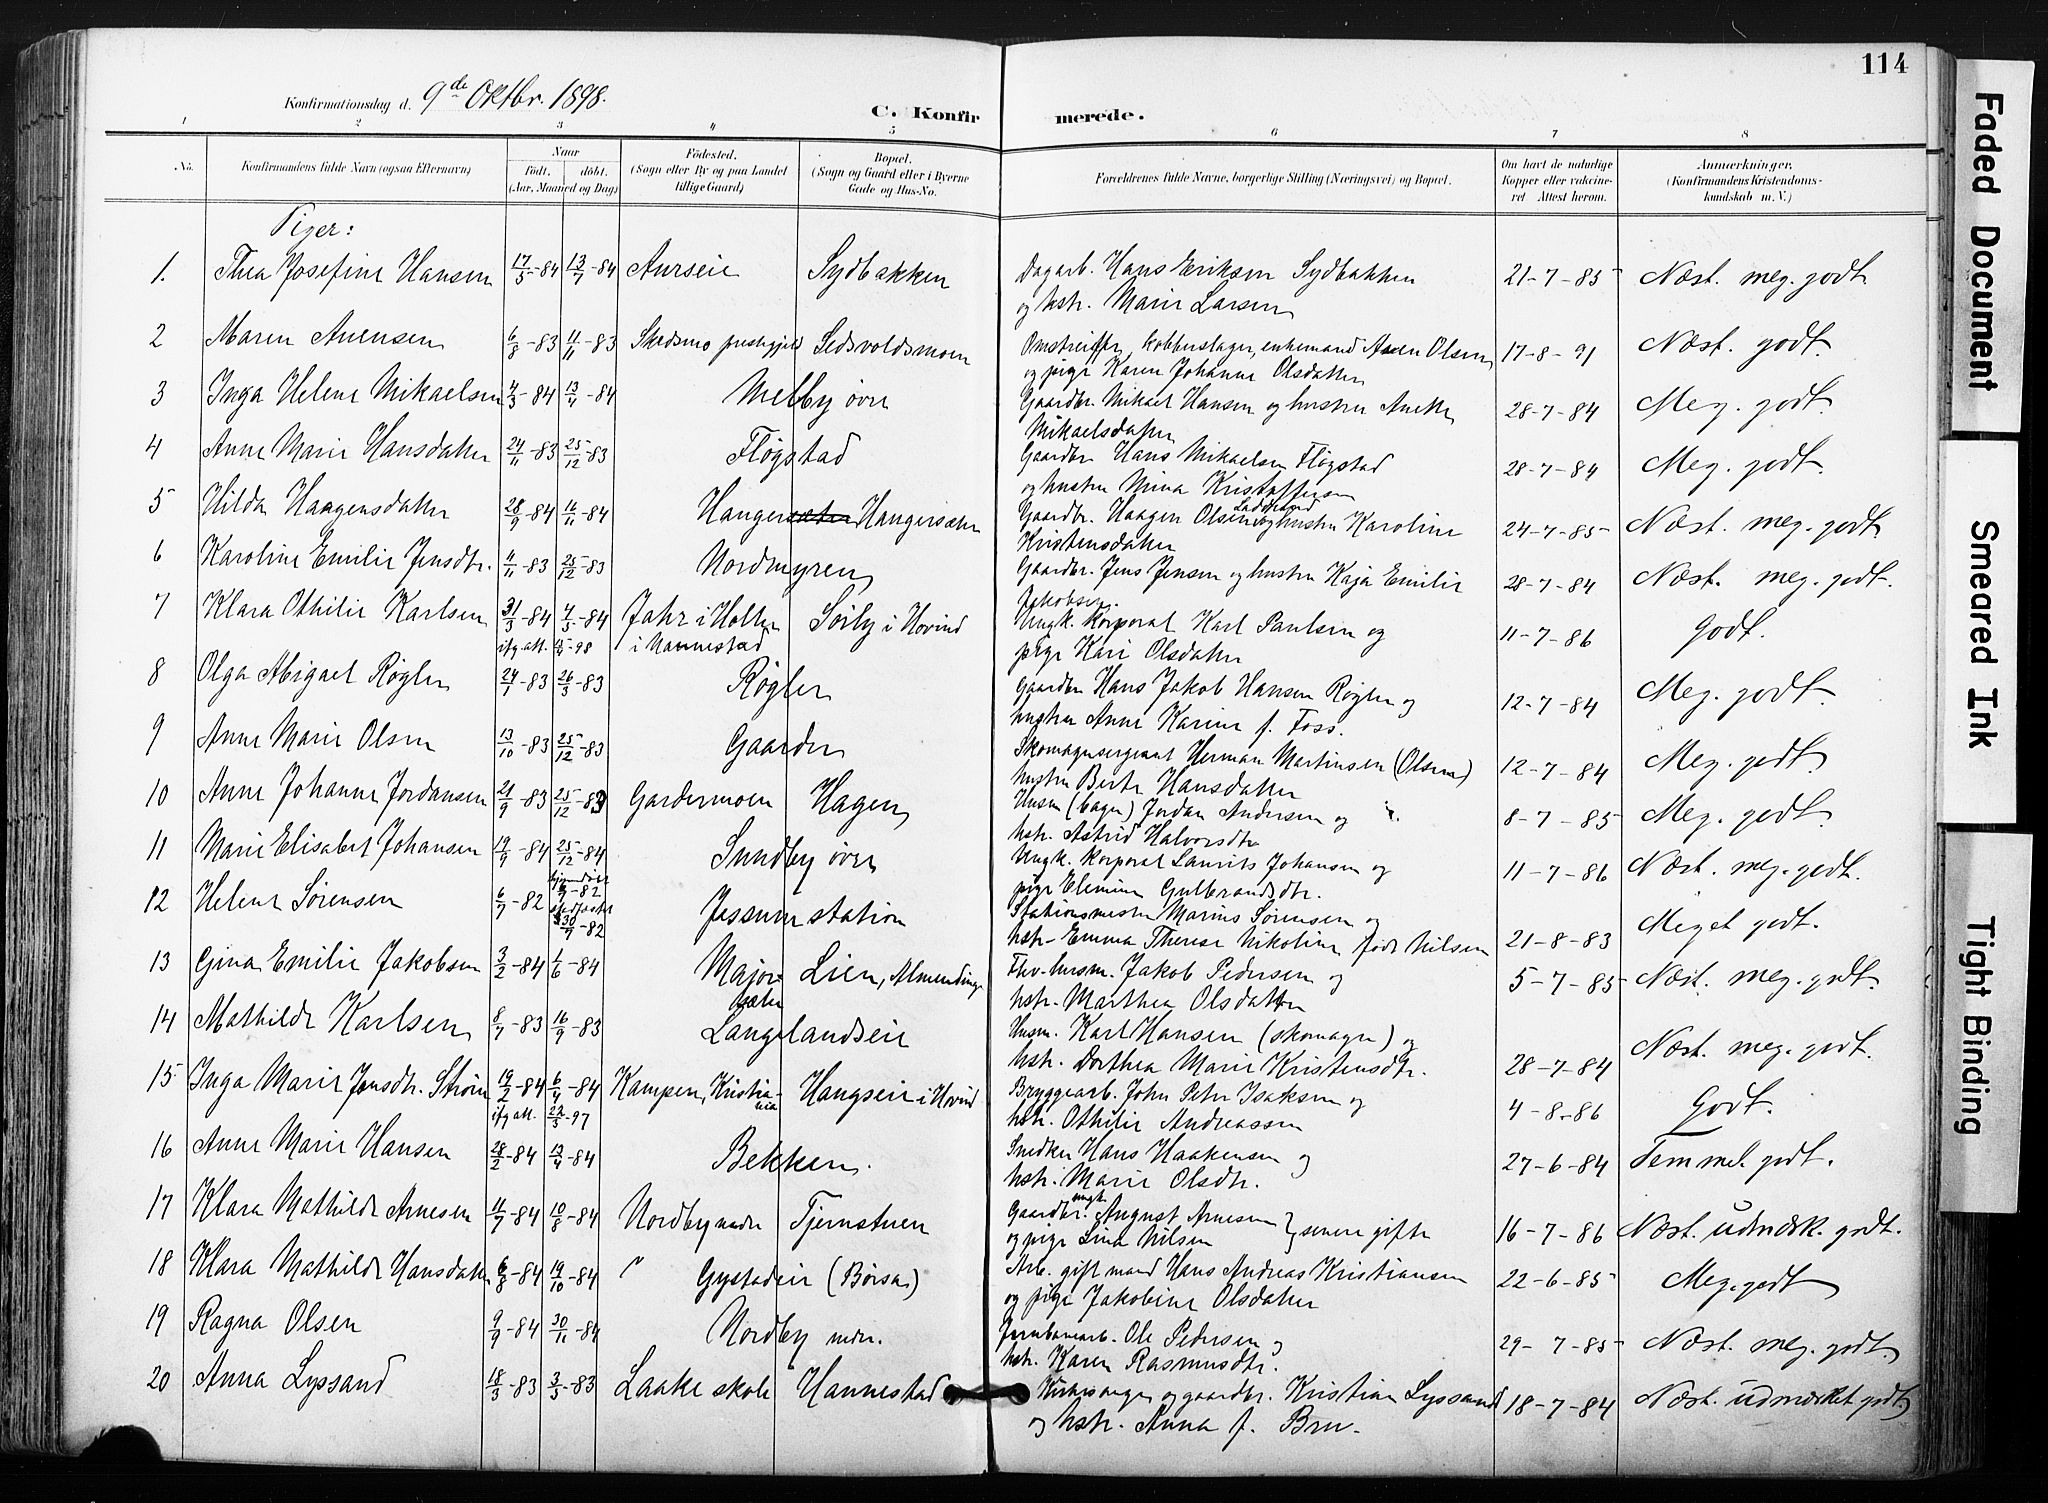 114
Konfirmationsdag d. 9de Oktbr. 1898.
C. Konfirmerede.
1 2 3 4 5 6 7 8
No. Konfirmandens fulde Navn (ogsaa Efternavn) Naar født. døbt. (Aar, Maaned og Dag) Fødested. (Sogn eller By og paa Landet tillige Gaard) Bopæl. (Sogn og Gaard eller i Byerne Gade og Hus-No. Forældrenes fulde Navne, borgerlige Stilling (Næringsvei) og Bopæl. Om havt de naturlige Kopper eller vakcineret Attest herom. Anmærkninger. (Konfirmandens Kristendomskundskab m. V.)
Piger:
1. Thea Josefine Hansen 17/5-84 13/7-84 Aurseie Sydbakken Dagarb. Hans Eriksen Sydbakken 21-7-85 Næst. meg. godt
og hstr. Marie Larsen
2 Maren Anensen 6/8-83 11/11-83 Skedsmo prestegjeld Sedsvoldsmoen Omstreifer, kobberslager, enkemand Olsen 17-8-91 Næst. godt.
og pige Karen Johanne Olsdatter
3 Inga Helene Mikaelsen 4/3-84 13/4-84 Melby øvre Gaardbr. Mikael Hansen og hustru Anette 28-7-84 Meg. godt.
Mikaelsdatter
4 Anne Marie Hansdatter 24/11-83 25/12-83 Fløgstad Gaardbr Hans Mikaelsen Fløgstad 28-7-84 Meg. godt.
og hustru Mina Kristoffersen
5 Hilda Haagensdatter 28/9-84 16/11-84 Hangersæter Hangersæter Gaardbr. Haagen Olsen og hustru Karoline 24-7-85 Næst. meg. godt
Kristensdatter
6 Karoline Emilie Jensdtr. 11/11-83 25/12-83 Nordmyren Gaardbr. Jens Jensen og hustru Kaja Emilie 28-7-84 Næst. meg. godt.
Jakobsen.
7 Klara Othilie Karlsen 31/3-84 4/5-84 Jahr i Holter Sørby i Hovind Ungk. Korporal Karl Paulsen og 11-7-86 Godt.
ifg. att. -98 i Nannestad pige Kari Olsdatter
8 Olga Abigael Røgler 24/1-83 26/3-83 Røgler Gaardbr Hans Jakob Hansen Røgler og 12-7-84 Meg. godt.
hustru Anne Karine f. Foss.
9 Anne Marie Olsen 13/10-83 25/12-83 Gaarder Skomagersergeant Herman Martinsen (Olsen) 12-7-84 Meg. godt.
hustru Berte Hansdatter
10 Anne Johanne Jordansen 21/9-83 25/12-83 Gardermoen Hagen Husm (bager) Jordan Andersen og 8-7-85 Meg. godt.
hstr. Astrid Halvorsdtr
11 Marie Elisabet Johansen 19/9-84 25/12-84 Sundby øvre Ungk. korporal Laurits Johansen og 11-7-86 Næst. meg. godt.
pige Elemine Gulbrandsdtr.
12 Helene Sørensen 6/7-82 hjemdøbt -82 stadfæstet 30/9-82 Jessum station Stationsmester Marius Sørensen og 21-8-83 Meget godt.
hstr. Emma Therese Nikoline født Nilsen
13 Gina Emilie Jakobsen 3/2-84 1/6-84 Majorsæter Lien, Almending Jakob Pedersen og 5-7-85 Næst. meg. godt.
hstr. Marthea Olsdatter
14 Mathilde Karlsen 8/7-83 16/9-83 Langelandseie Husm. Karl Hansen (skomager) og 28-7-84 Næst. meg. godt.
hstr. Dorthea Marie Kristensdtr.
15 Inga Marie Jensdtr. Strøm 19/2-84 6/4-84 Kampen, Kristiania Haugseie i Hovind Bryggearb. John Peter Isaksen og 4-8-86 Godt.
ifg att. 22/5-97 hstr. Othilie Andreassen
16 Anne Marie Hansen 28/2-84 13/4-84 Bekken. Snedker Hans Haakensen og 27-6-84 Temmel. godt.
hstr. Marie Olsdtr.
17 Klara Mathilde Arnesen 11/7-84 10/8-84 Nordby nedre Tjernstuen Gaardbr. ungk. August Arnesen } senere gifte 16-7-86 Næst. udmærk. godt.
og pige Lina Nilsen
18 Klara Mathilde Hansdatter 6/8-84 19/10-84 " Gystadeie (Børsa) Arb. gift mand Hans Andreas Kristiansen 22-6-85 Meg. godt
og pige Jakobine Olsdatter
19 Ragna Olsen 9/9-84 30/11-84 Nordby nedr. Jernbanearb. Ole Pedersen og 29-7-85 Næst. meg. godt.
hstr. Karen Rasmusdtr.
20 Anna Lyssand 18/3-83 3/5-83 Laake skole Hannestad Kirkesanger og gaardbr. Kristian Lyssand 18-7-84 Næst. udmærket godt
og hstr. Anna f. Bru.
Faded Document
Smeared Ink
Tight Binding